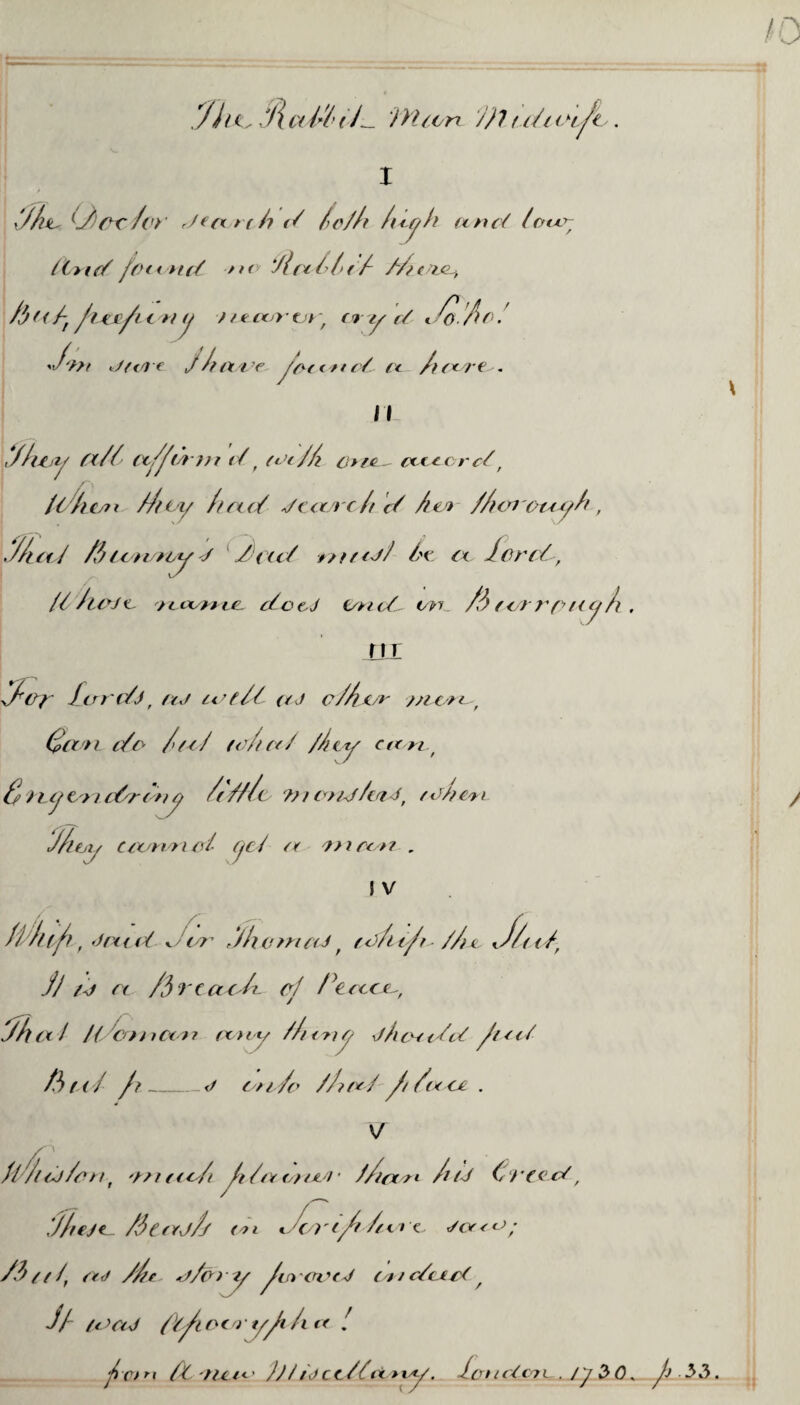 10
The Rabbit-Man Midwife.
I
The Doctor search'd both high and low,
And found no Rabbit there,
But, peeping nearer, cry'd So.ho!
I'm sure I have found a hare.
II
They all affirm'd, with one accord,
When they had search'd her thorough,
That Bunny's Dad must be a Lord,
Whose name does end in Burrough.
III
For Lords, as well as other men,
Can do but what they can,
Engendring little monsters, when
They cannot get a man.
IV
Whip, said Sir Thomas, whip the Slut,
It is a Breach of Peace,
That Woman any thing should put
But p____s into that place.
V
Whiston, much plainer than his Creed,
These Beasts in Scripture saw;
But, as the story proves indeed,
It was Apocrypha!
from A new Miscellany. London. 1730. p. 33.